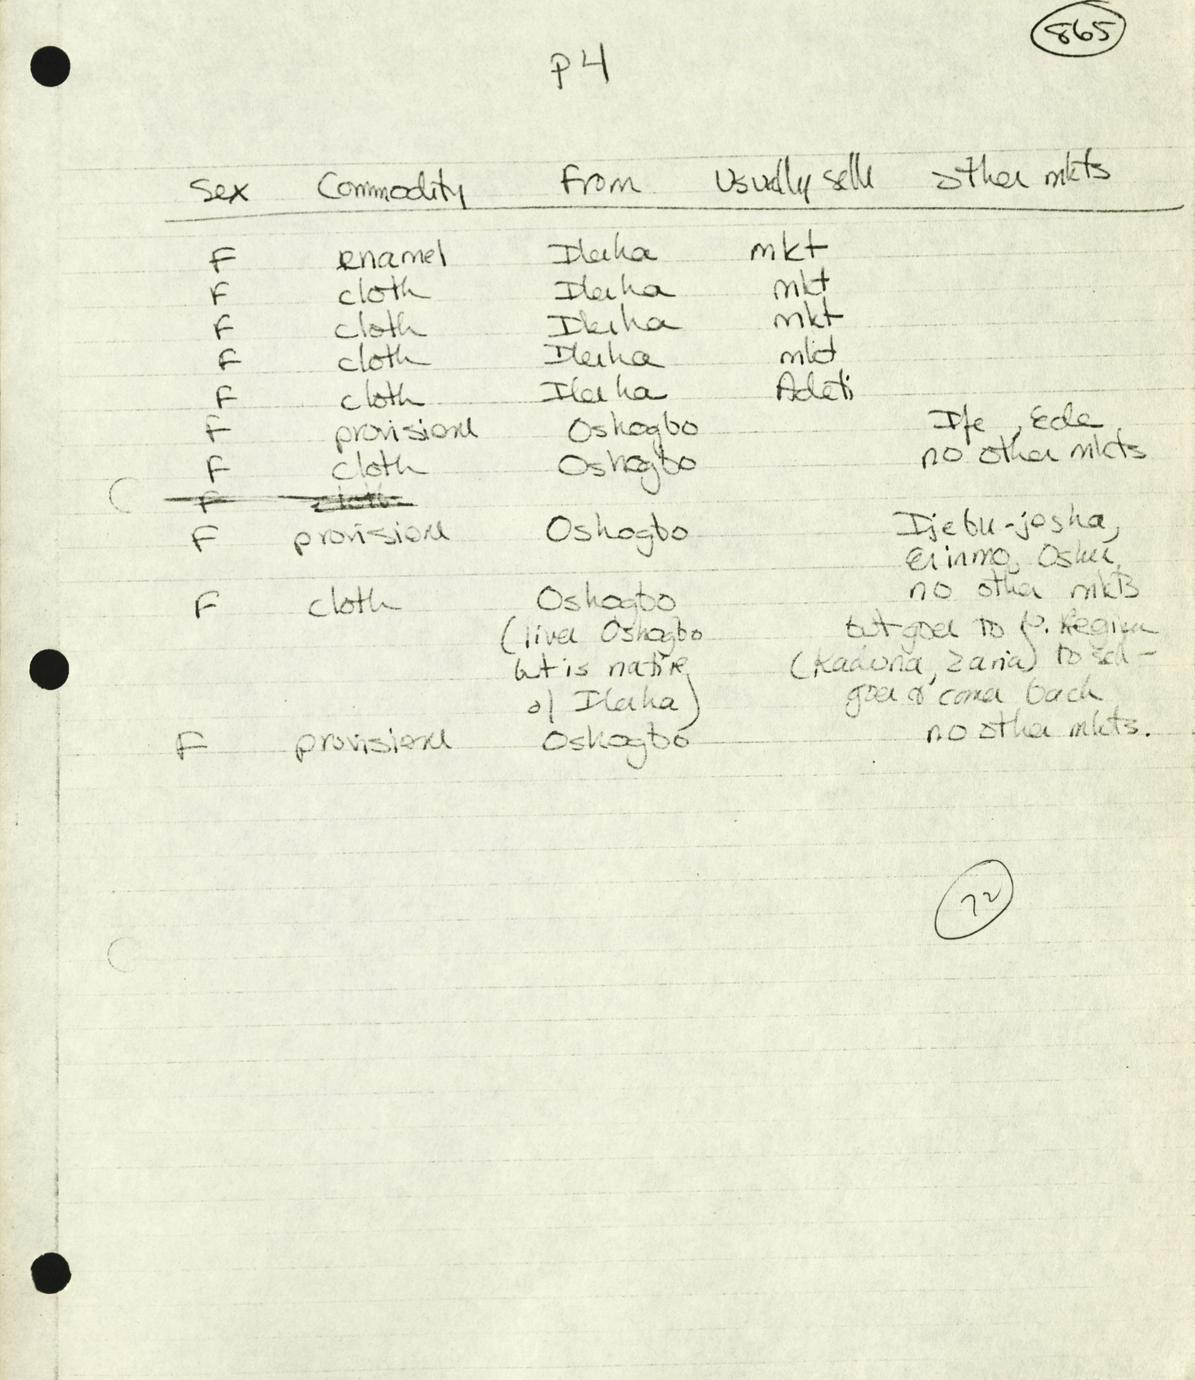 865
p4
Sex Commodity From Usually sells other mkts
F enamel Ilesha mkt
F cloth Ilesha mkt
F cloth Ilesha mkt
F cloth Ilesha mkt
F cloth Ilesha Adeti
F provisions Oshogbo Ife, Ede
F cloth Oshogbo no other mkts
F cloth
F provisions Oshogbo Ijebu-jesha,
Erinmo, Oshu,
F cloth Oshogbo no other mkts
(lives Oshogbo but goes to N. Region
but is native (Kaduna, Zaria) to sell -
of Ilesha) goes & comes back
F provisions Oshogbo no other mkts.
72